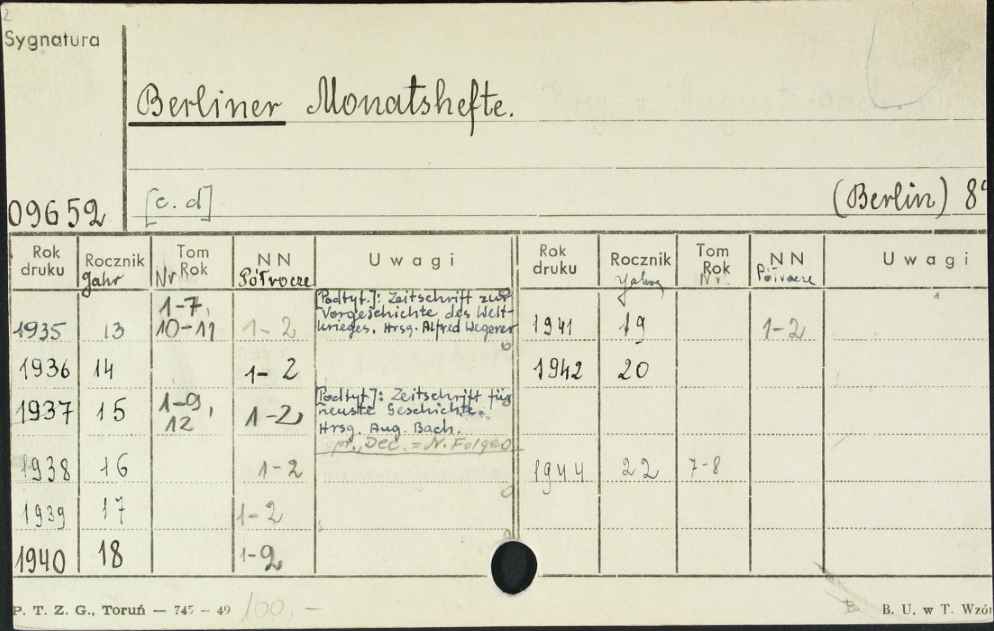 2
Sygnatura
Berliner Monatshefte.
09652 [c. d] (Berlin) 8°
Rok druku Rocznik Jahr Tom Rok Nr NN Półrocze Uwagi Rok druku Rocznik Jahrg Tom Rok Nr. NN Półrocze Uwagi
1935 13 1-7, 10-11 1-2 [Podtyt.]: Zeitschrift zur Vorgeschichte des Welt- krieges. Hrsg. Alfred Wegerer 1941 19 1-2
1936 14 1-2 1942 20
1937 15 1-9, 12 1-2 [Podtyt.]: Zeitschrift für neuste Geschichte. Hrsg. Aug. Bach.
Dec. = N. Folge
1938 16 1-2 1944 22 7-8
1939 17 1-2
1940 18 1-2
P. T. Z. G., Toruń — 745 — 49 100.— B. U. w T. Wzór